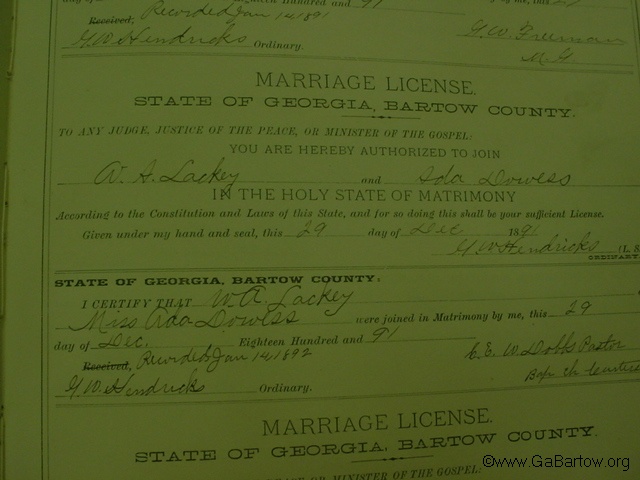 Eighteen Hundred and 91 by me, this
Received, Recorded Jan 14 1891
G.W. Hendricks Ordinary.
G. W. Freeman
M.G.
MARRIAGE LICENSE.
STATE OF GEORGIA, BARTOW COUNTY.
TO ANY JUDGE, JUSTICE OF THE PEACE, OR MINISTER OF THE GOSPEL:
YOU ARE HEREBY AUTHORIZED TO JOIN
W. A. Lackey and Ada Dowess
IN THE HOLY STATE OF MATRIMONY
According to the Constitution and Laws of this State, and for so doing this shall be your sufficient License.
Given under my hand and seal, this 29 day of Dec 1891
G W Hendricks (L. S
ORDINARY.
STATE OF GEORGIA, BARTOW COUNTY:
I CERTIFY THAT W. A. Lackey
Miss Ada Dowess were joined in Matrimony by me, this 29
day of Dec. Eighteen Hundred and 91
Received, Recorded Jan 14, 1892
G.W. Hendricks Ordinary.
E. E. W Dobbs Pastor
Bap ch
MARRIAGE LICENSE.
STATE OF GEORGIA, BARTOW COUNTY.
STATE OR MINISTER OF THE GOSPEL:
©www.GaBartow.org